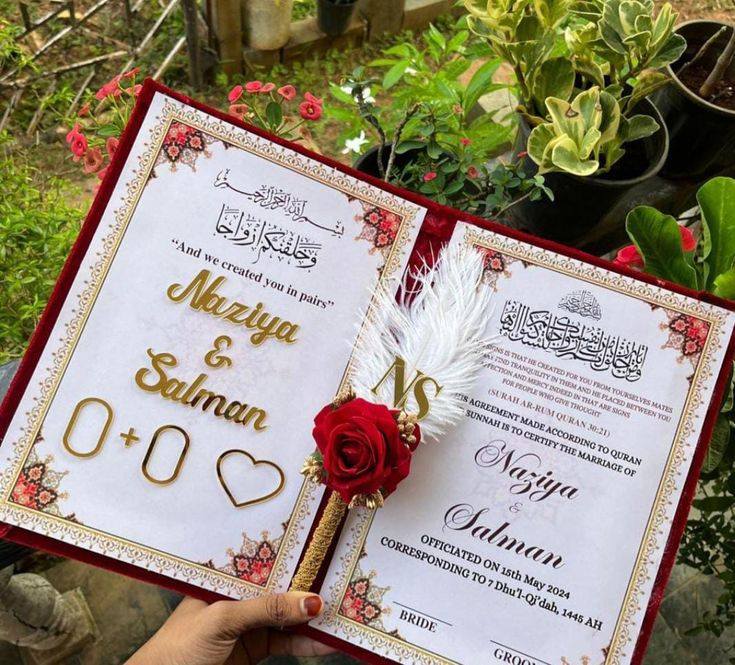 بسم الله الرحمن الرحيم
وخلقنكم ازواجا
“And we created you in pairs”
Naziya
&
Salman
0 + 0
NS
IS THAT HE CREATED FOR YOU FROM YOURSELVES MATES
TRANQUILITY IN THEM AND HE PLACED BETWEEN YOU
AFFECTION AND MERCY INDEED IN THAT ARE SIGNS
FOR PEOPLE WHO GIVE THOUGHT
(SURAH AR-RUM QURAN 30:21)
AGREEMENT MADE ACCORDING TO QURAN
SUNNAH IS TO CERTIFY THE MARRIAGE OF
Naziya
&
Salman
OFFICIATED ON 15th MAY 2024
CORRESPONDING TO 7 Dhu'l-Qi'dah, 1445 AH
BRIDE